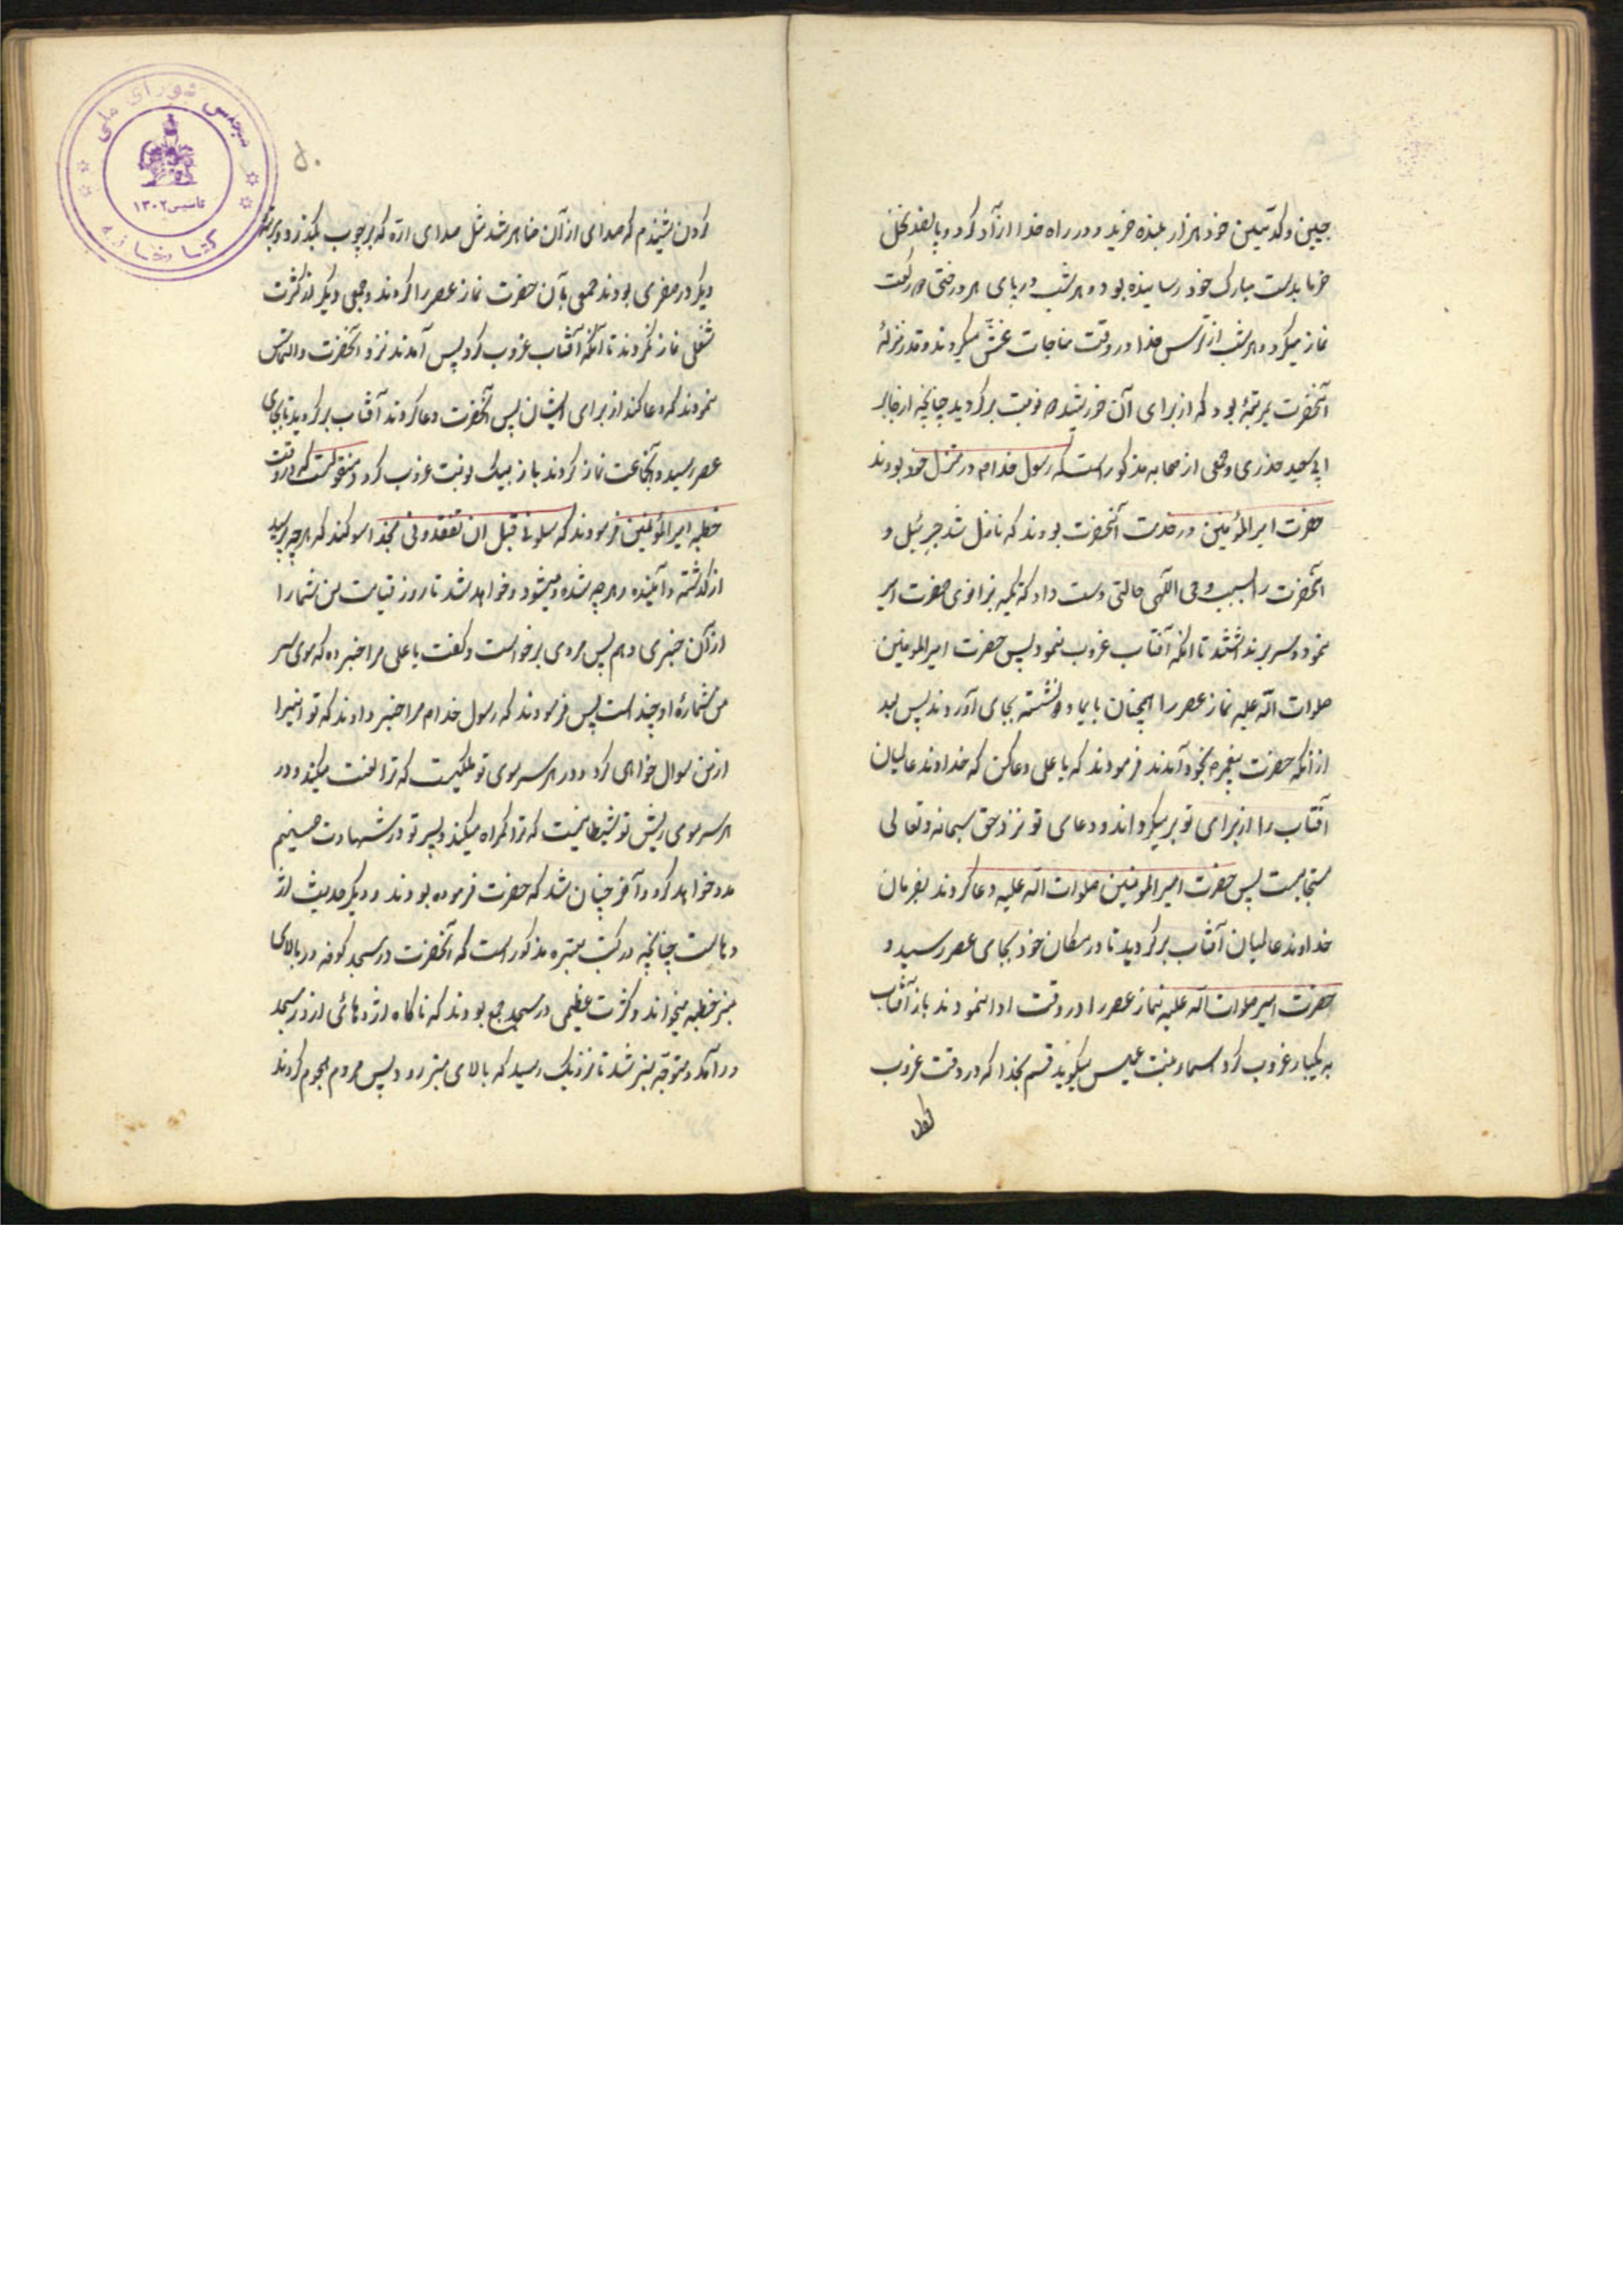 جبین و کد یمین خود هزار بنده خرید و در راه خدا ازآد کرد و پانصد نخل
خرما بدست مبارک خود رسانیده بود و هر شب در پای هر درختی دو رکعت
نماز میکرد و هر شب از ترس خدا در وقت مناجات غش میکردند و قدر و منزلهٔ
آنحضرت بمرتبهٔ بود که از برای آن خورشید دو نوبت برگردید چنانچه از جابر
ابی سعید خدری و جمعی از صحابه مذکور است که رسول خدا در منزل خود بودند
حضرت امیر المؤمنین در خدمت آنحضرت بودند که نازل شد جبرئیل و
آنحضرت را بسبب وحی الهی حالتی دست داد که تکیه بزانوی حضرت امیر
نمود و سر برنداشتند تا انکه آفتاب غروب نمود پس حضرت امیر المومنین
صلوات الله علیه نماز عصر را همچنان بایما و نشسته بجای آوردند پس بعد
از انکه حضرت پیغمبر بخود آمدند فرمودند که یا علی دعا کن که خداوند عالمیان
آفتاب را از برای تو بر میگرداند و دعای تو نزد حق سبحانه و تعالی
مستجابست پس حضرت امیر المومنین صلوات الله علیه دعا کردند بفرمان
خداوند عالمیان آفتاب برگردید تا در مکان خود بجای عصر رسید و
حضرت امیر صلوات الله علیه نماز عصر را در وقت ادا نمودند باز آفتاب
به یکبار غروب کرد اسماء بنت عمیس میگوید قسم بخدا که در وقت غروب
کردن
۵۰
کردن شنیدم که صدای از آن ظاهر شد مثل صدای ارّه که بر چوب بگذرد و مرتبهٔ
دیگر در سفری بودند جمعی بآن حضرت نماز عصر را کردند و جمعی دیگر از کثرت
شغلی نماز نکردند تا آنکه آفتاب غروب کرد پس آمدند نزد آنحضرت و التماس
نمودند که دعا کند از برای ایشان پس آنحضرت دعا کردند آفتاب برگردید تا بجای
عصر رسید و آنجماعت نماز کردند باز بیک نوبت غروب کرد و منقولست که در وقت
خطبه امیر المؤمنین فرمودند که سلونی قبل ان تفقدونی بخدا سوگند که هر چه بپرسید
از گذشته و آینده و هر چه شده و میشود و خواهد شد تا روز قیامت من شما را
از آن خبری دهم پس مردی برخواست و گفت یا علی مرا خبر ده که موی سر
من شمارهٔ او چند است پس فرمودند که رسول خدا مرا خبر دادند که تو اینرا
از من سوال خواهی کرد و در هر سر موی تو ملکیست که ترا لعنت میکند و در
هر سر موی ریش تو شیطانیست که ترا گمراه میکند و پسر تو در شهادت حسینم
مدد خواهد کرد و آخر چنان شد که حضرت فرموده بودند و دیگر حدیث اژ
دهاست چنانچه در کتب معتبره مذکور است که آنحضرت در مسجد کوفه در بالای
منبر خطبه میخواند و کثرت عظیمی در مسجد جمع بودند که ناگاه اژدهائی از در مسجد
در آمد و متوجّه منبر شد تا نزدیک رسید که بالای منبر رود پس مردم هجوم کردند
مجلس شورای ملی
تاسیس ۱۳۰۲
کتابخانه